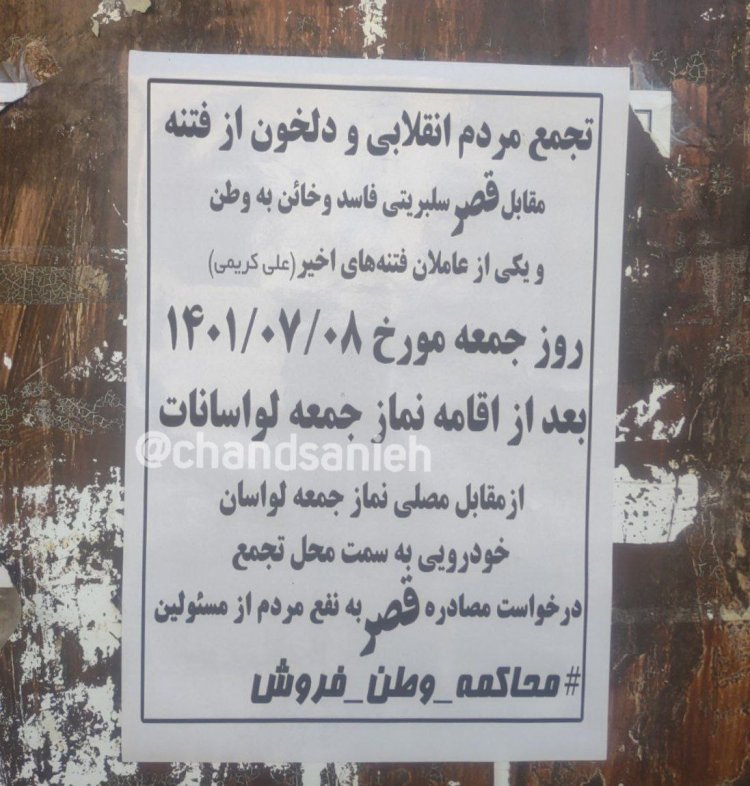 تجمع مردم انقلابی و دلخون از فتنه
مقابل قصر سلبریتی فاسد و خائن به وطن
و یکی از عاملان فتنه‌های اخیر (علی کریمی)
روز جمعه مورخ ۱۴۰۱/۰۷/۰۸
بعد از اقامه نماز جمعه لواسانات
@chandsanieh
از مقابل مصلی نماز جمعه لواسان
خودرویی به سمت محل تجمع
درخواست مصادره قصر به نفع مردم از مسئولین
#محاکمه_وطن_فروش